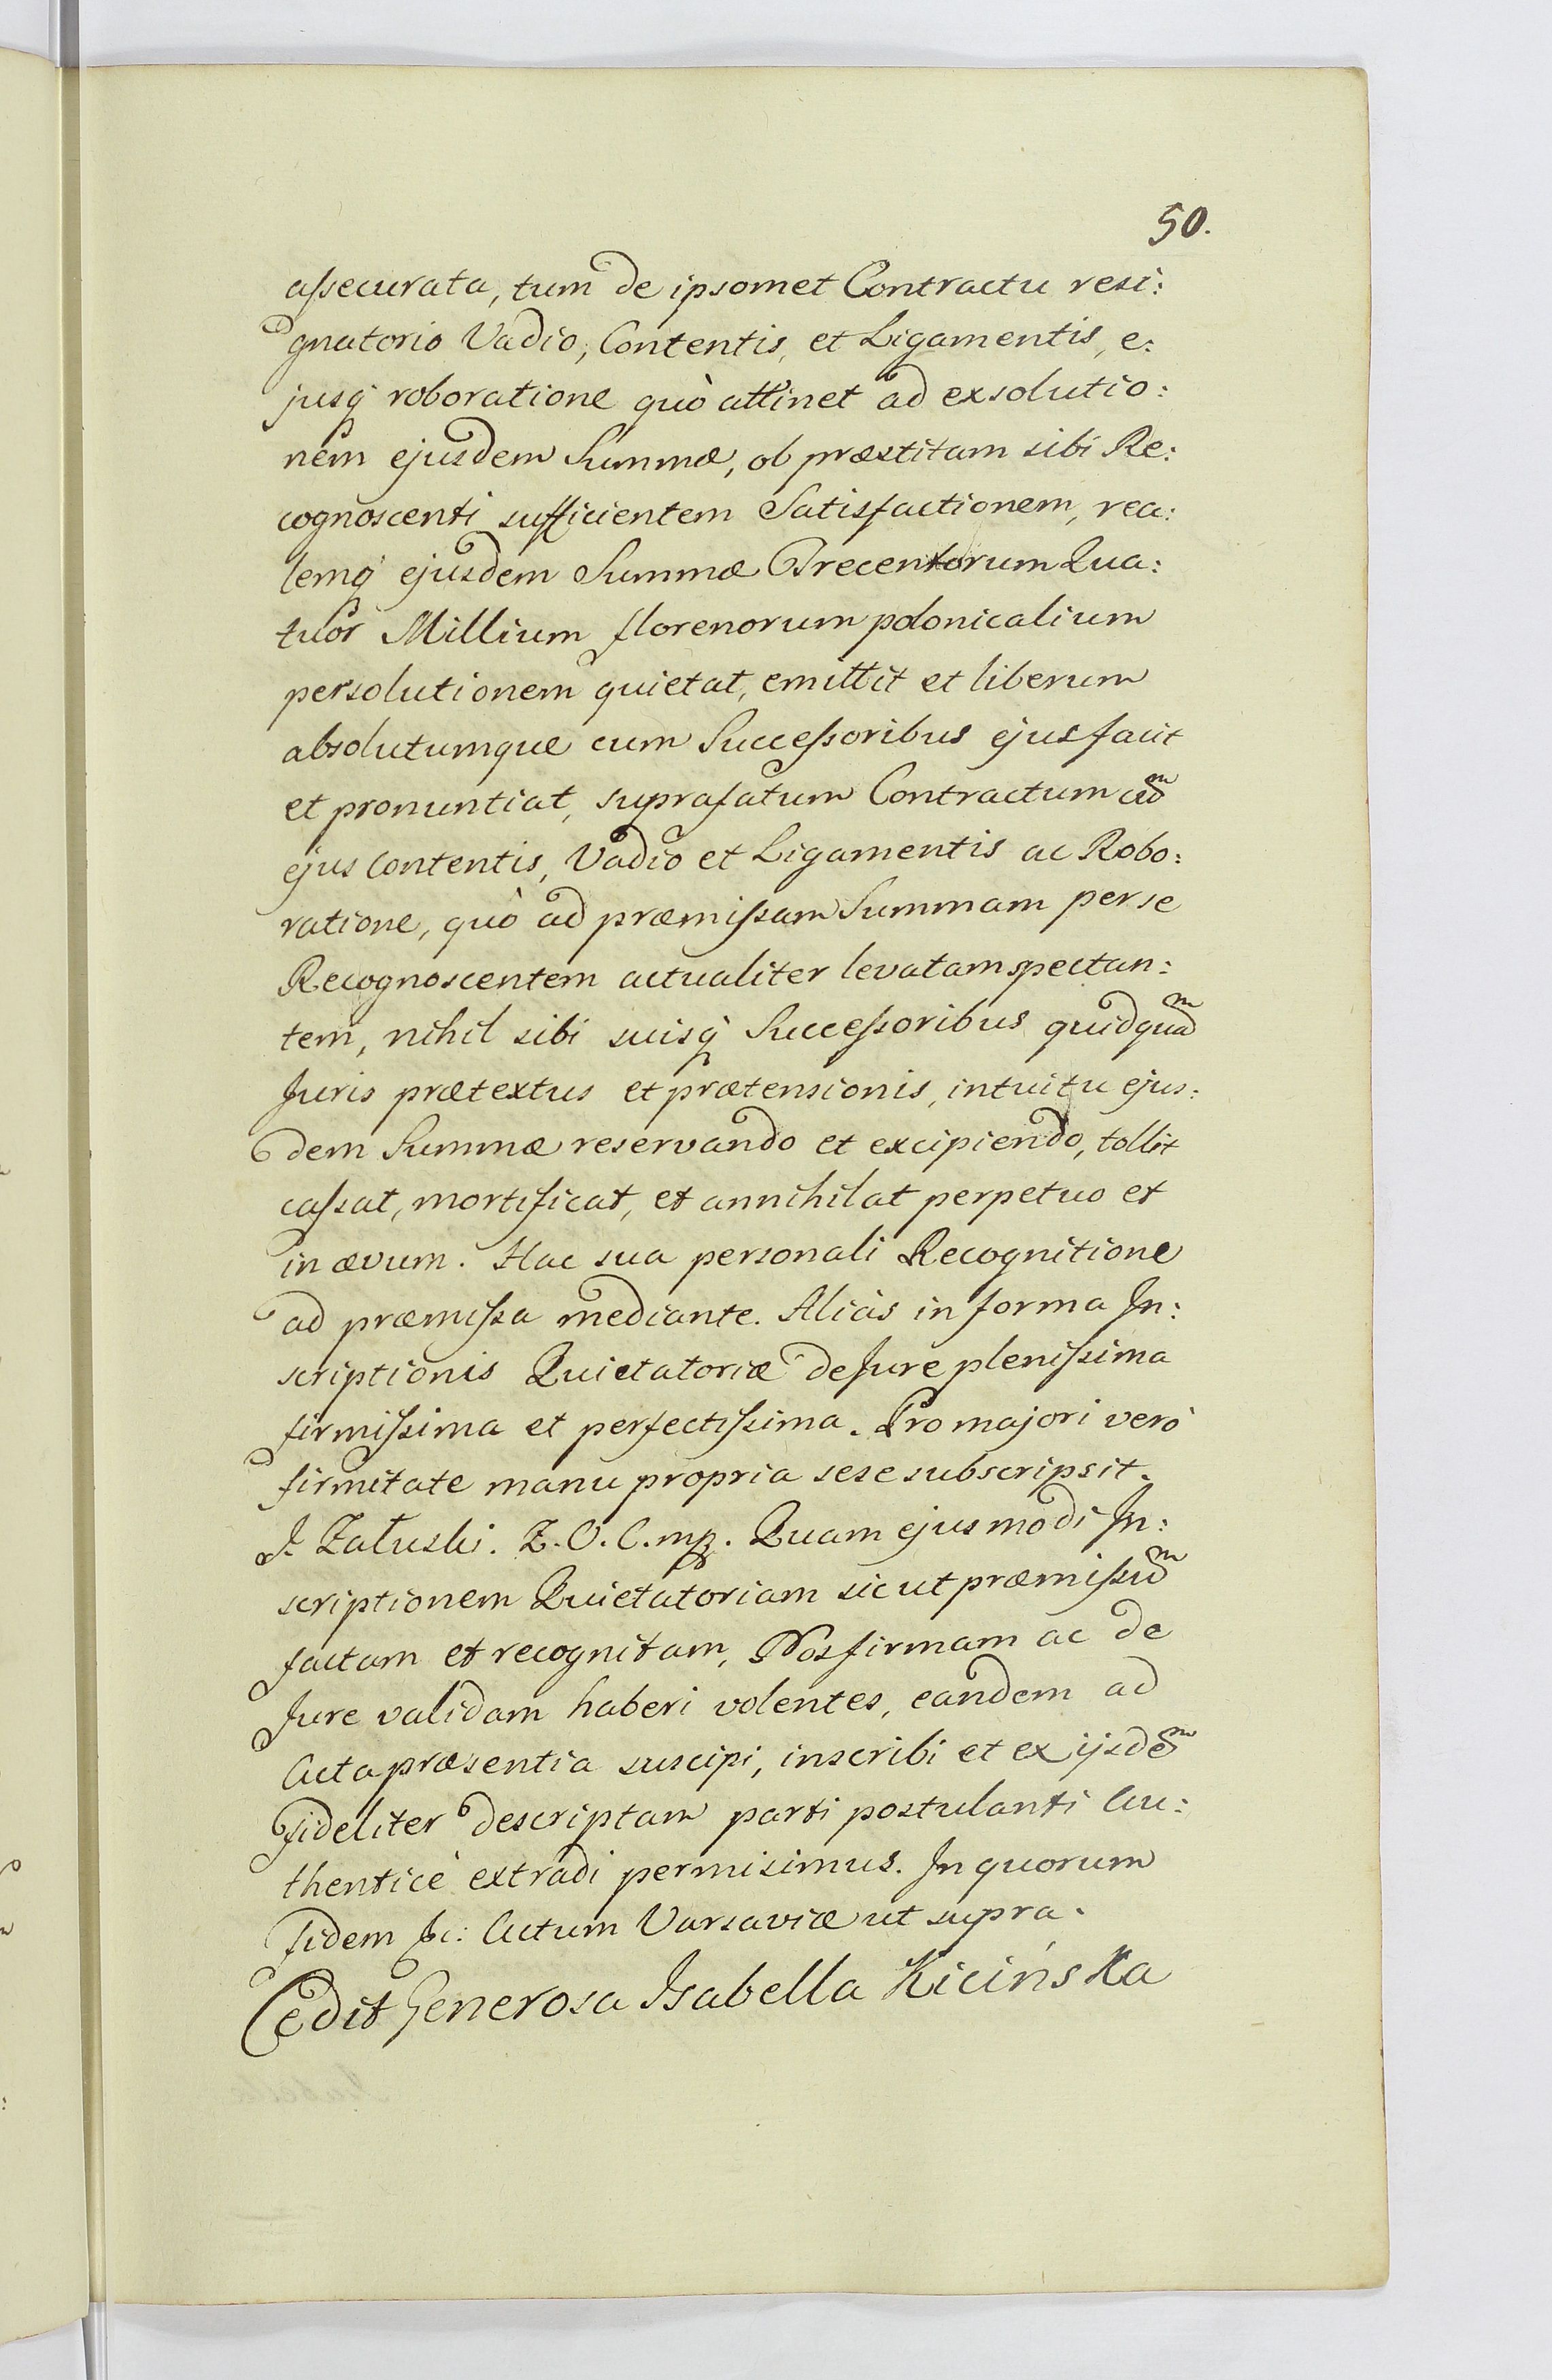 50.
assecurata, tum de ipsomet Contractu resi:
gnatorio Vadio, Contentis, et Ligamentis, e:
jusq̀ roboratione quò attinet ad exsolutio:
nem ejusdem Summæ, ob præstitam sibi Re:
cognoscenti sufficientem Satisfactionem, rea:
lemq̀ ejusdem Summæ Trecentorum Qua:
tuor Millium florenorum polonicalium
persolutionem quietat, emittit et liberum
absolutumque cum Successoribus ejus facit
et pronuntiat, suprafatum Contractum cũ
ejus Contentis, Vadio et Ligamentis ac Robo:
ratione, quò ad præmissam Summam per se
Recognoscentem actualiter levatam spectan:
tem, nihil sibi suisq̀ Successoribus quidquã
Juris prætextus et prætensionis, intuitu ejus:
dem Summæ reservando et excipiendo, tollit
cassat, mortificat, et annihilat perpetuo et
in ævum. Hac sua personali Recognitione
ad præmissa mediante. Aliàs in forma In:
scriptionis Quietatoriæ de Jure plenissima
firmissima et perfectissima. Pro majori verò
firmitate manu propria sese subscripsit.
J. Załuski. Z. O. C. mp. Quam ejusmodi In:
scriptionem Quietatoriam sicut præmissũ
factam et recognitam, Nos firmam ac de
Jure validam haberi volentes, eandem ad
Acta præsentia suscipi, inscribi et ex ijsdẽ
fideliter descriptam parti postulanti Au:
thenticè extradi permisimus. In quorum
fidem &c: Actum Varsaviæ ut supra.
Cedit Generosa Isabella Kicińska